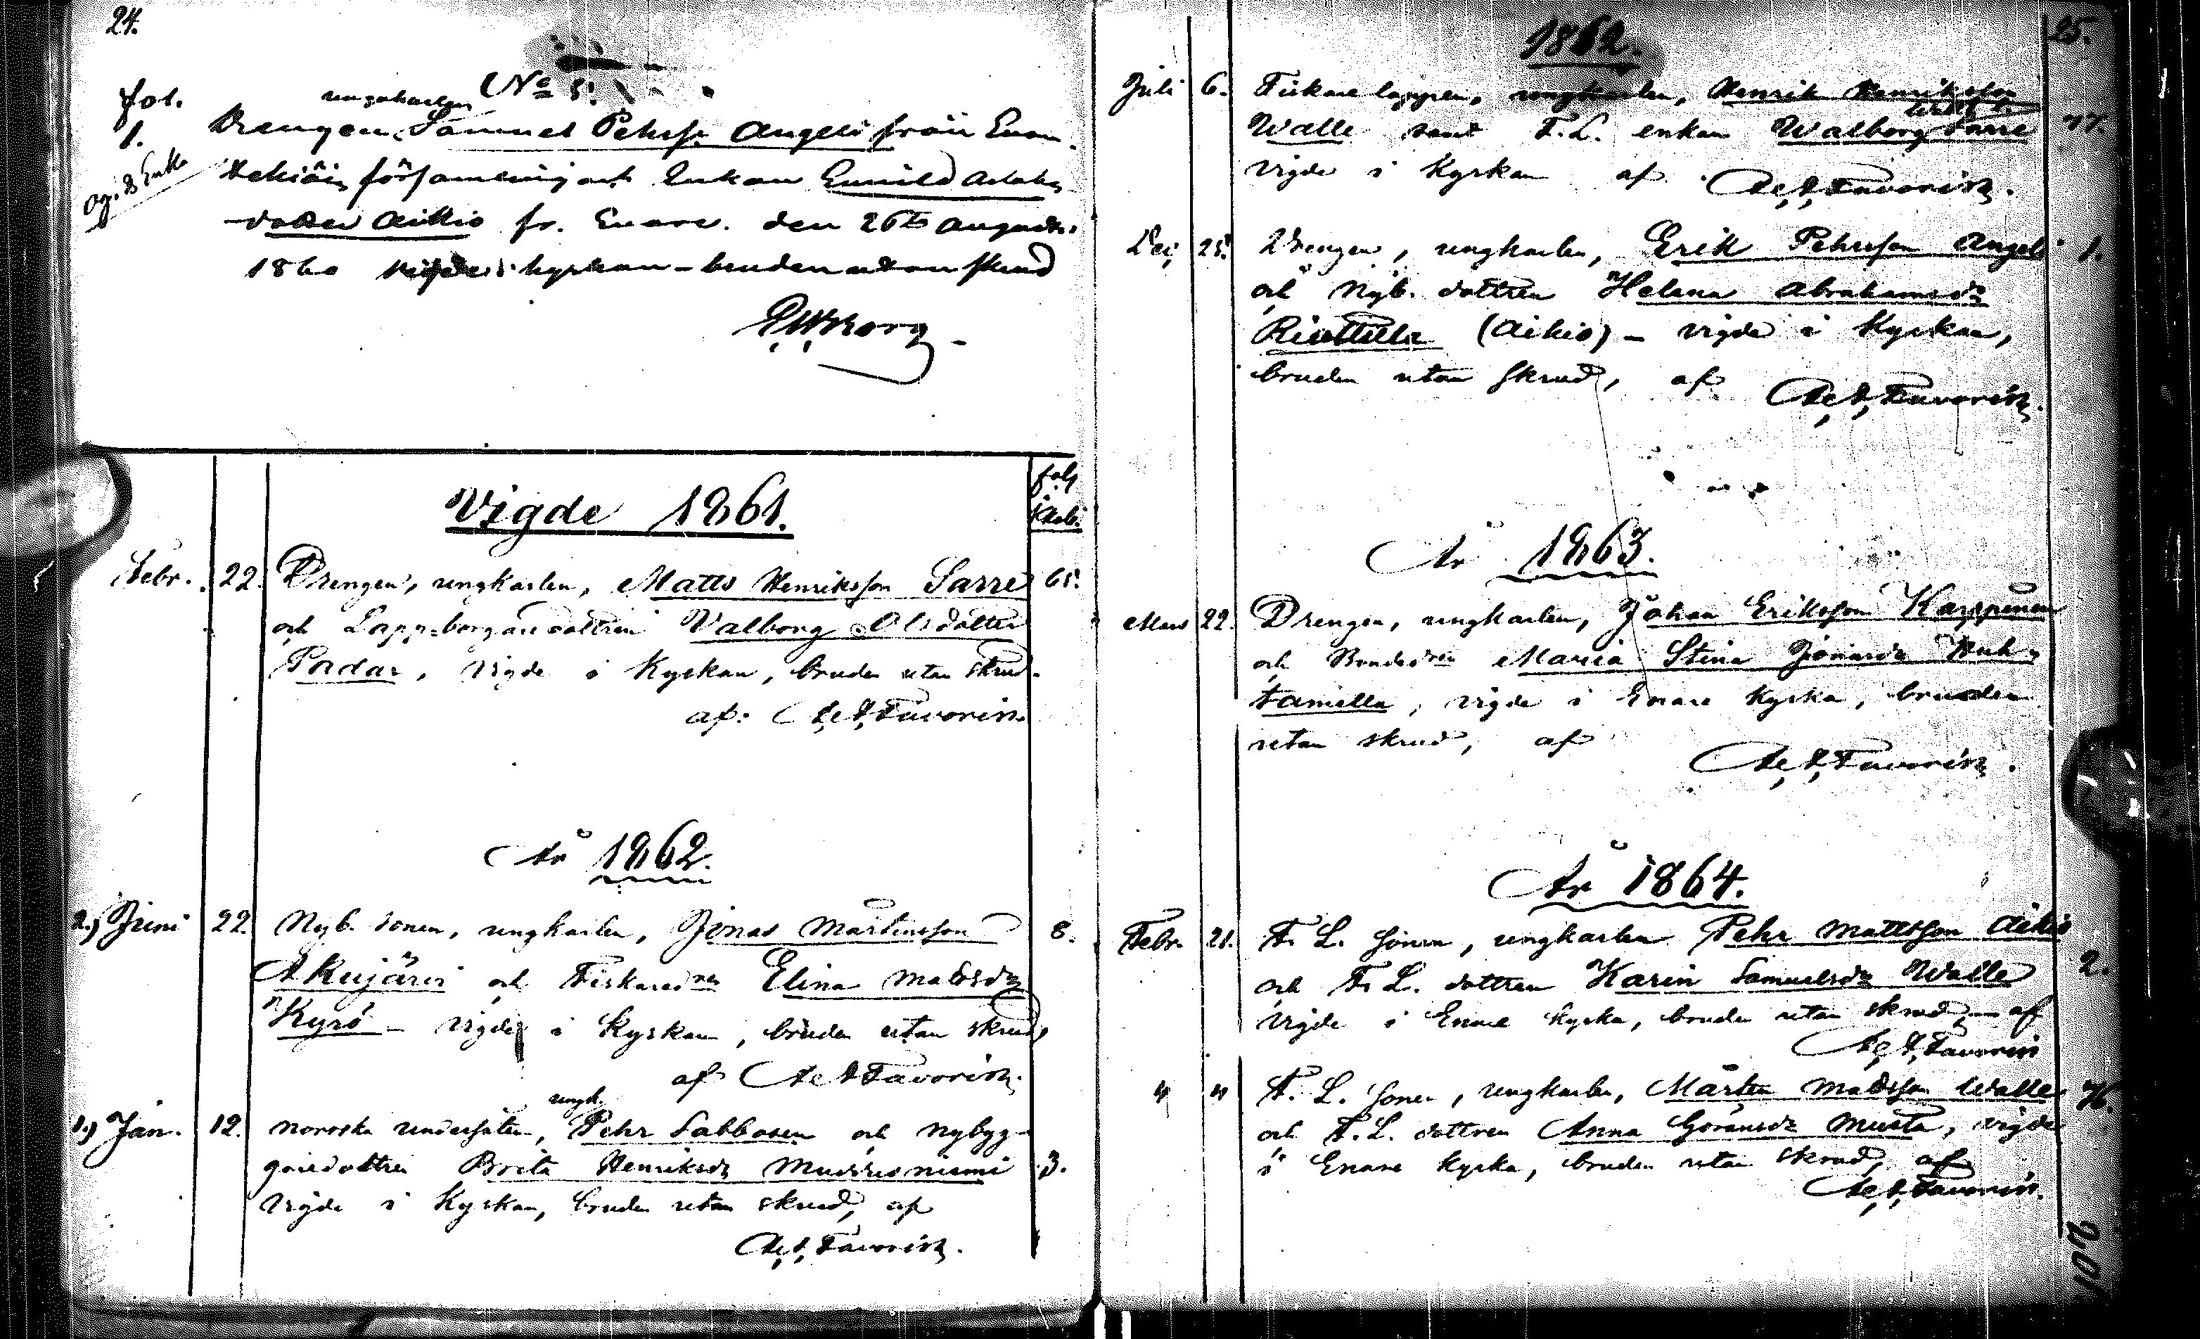 24.
No 5.
fol. ungkarlen
1. Drengen Samuel Pehrss. Angeli från Enon-
tekiäis församling och Enkan Gunild
dotter Aikio fr. Enare. den 26te Augusti
1860 vigde i kyrkan - bruden utan skrud
Borg
Vigde 1861.
Febr. 22. Drengen, ungkarlen, Matts Henriksson Sarre 65.
och Lappborgaredottren Valborg Olsdotter
Padar, vigde i Kyrkan, bruden utan skrud.
af: Favorin.
År 1862.
2.) Juni 22. Nyb. sonen, ungkarlen, Jonas Mårtensson 8.
Akujärvi och Fiskaredren Elina Matsdr
Kyrö - vigde i Kyrkan, bruden utan skrud,
af Favorin.
ungk.
1.) Jan. 12. norrska undersåten, Pehr Sabbasen och nybyg-
garedottren Brita Henriksdr Mudusniemi 3.
vigde i Kyrkan, bruden utan skrud, af
Favorin.
25.
1862.
Juli 6. Fiskare lappen, ungkarlen, Henrik Henriksson
Walle samt F.L. enkan Walborg Sarre 77.
vigde i Kyrkan af Favorin.
Dec. 25. Drengen, ungkarlen, Erik Pehrsson Angeli 1.
och Nyb. dottren Helena Abrahamsdr
Riuttula (Aikio) - vigde i Kyrkan,
bruden utan skrud, af Favorin.
År 1863.
Mars 22. Drengen, ungkarlen, Johan Eriksson Karppinen
och Bondedren Maria Stina Jonasdr Huh-
tamella, vigde i Enare Kyrka, bruden
utan skrud, af
Favorin.
År 1864.
Febr. 21. F. L. sonen, ungkarlen Pehr Mattsson Aikio
och F. L. dottren Karin Samuelsdr Walle 2.
vigde i Enare kyrka, bruden utan skrud, af
Favorin
" " F. L. sonen, ungkarlen, Mårten Matsson Walle 76.
och F. L. dottren Anna Göransdr Musta, vigde
i Enare kyrka, bruden utan skrud, af
Favorin.